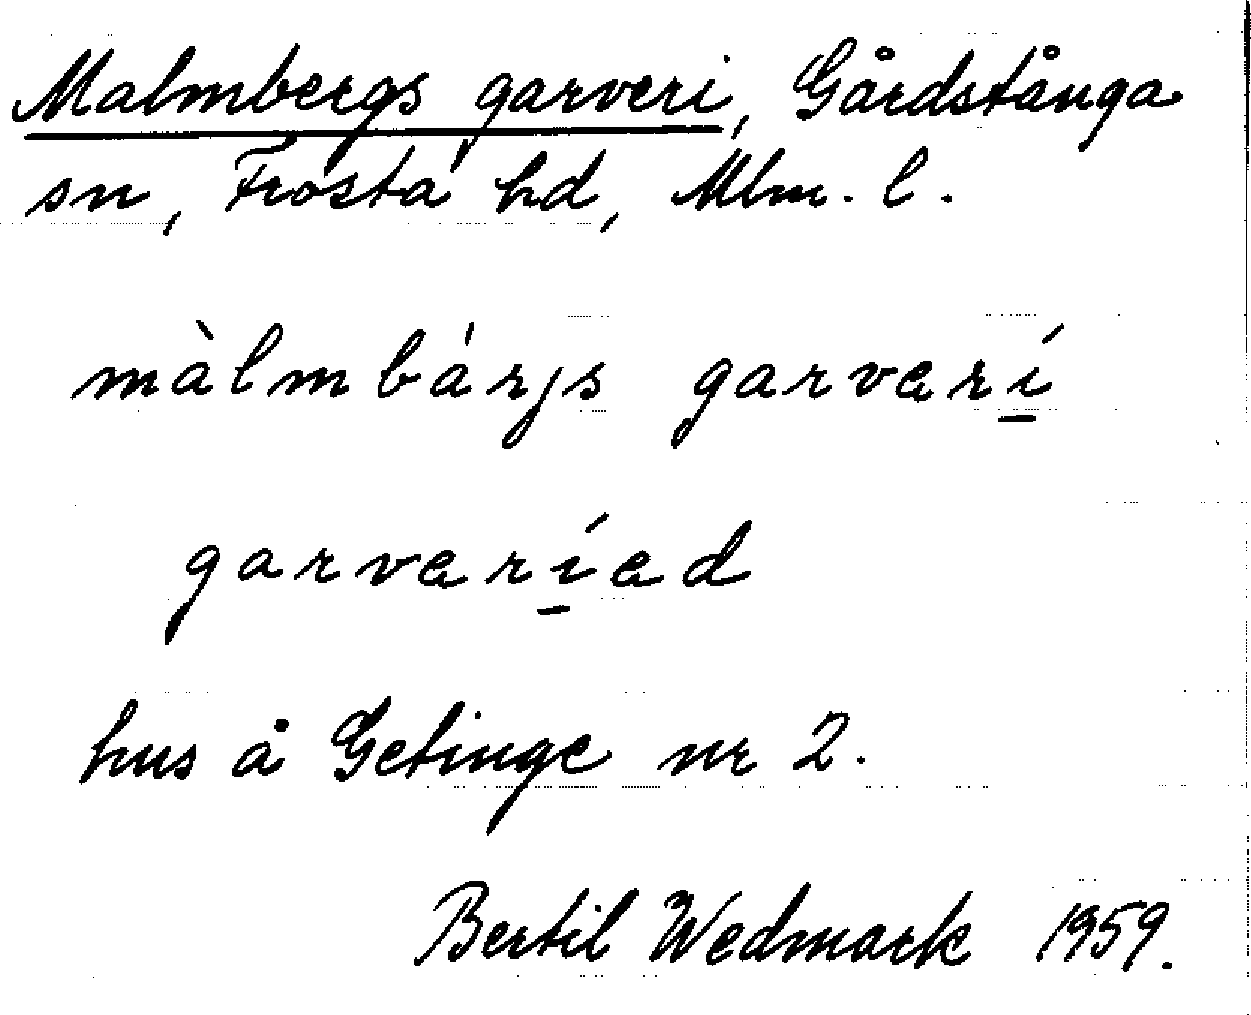 Malmbergs garveri, Gårdstånga
sn, Frosta hd, Mlm. l.
màlmbárjs garvarí
garvaríad
hus å Getinge nr 2.
Bertil Wedmark 1959.